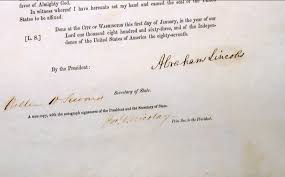 favor of Almighty God.
In witness whereof I have hereunto set my hand and caused the seal of the United
States to be affixed.
[L. S.]
Done at the CITY OF WASHINGTON this first day of January, in the year of our
Lord one thousand eight hundred and sixty-three, and of the Indepen-
dence of the United States of America the eighty-seventh.
By the President:
Abraham Lincoln
William H Seward
Secretary of State.
A true copy, with the autograph signatures of the President and the Secretary of State.
Jno. G. Nicolay
Priv. Sec. to the President.